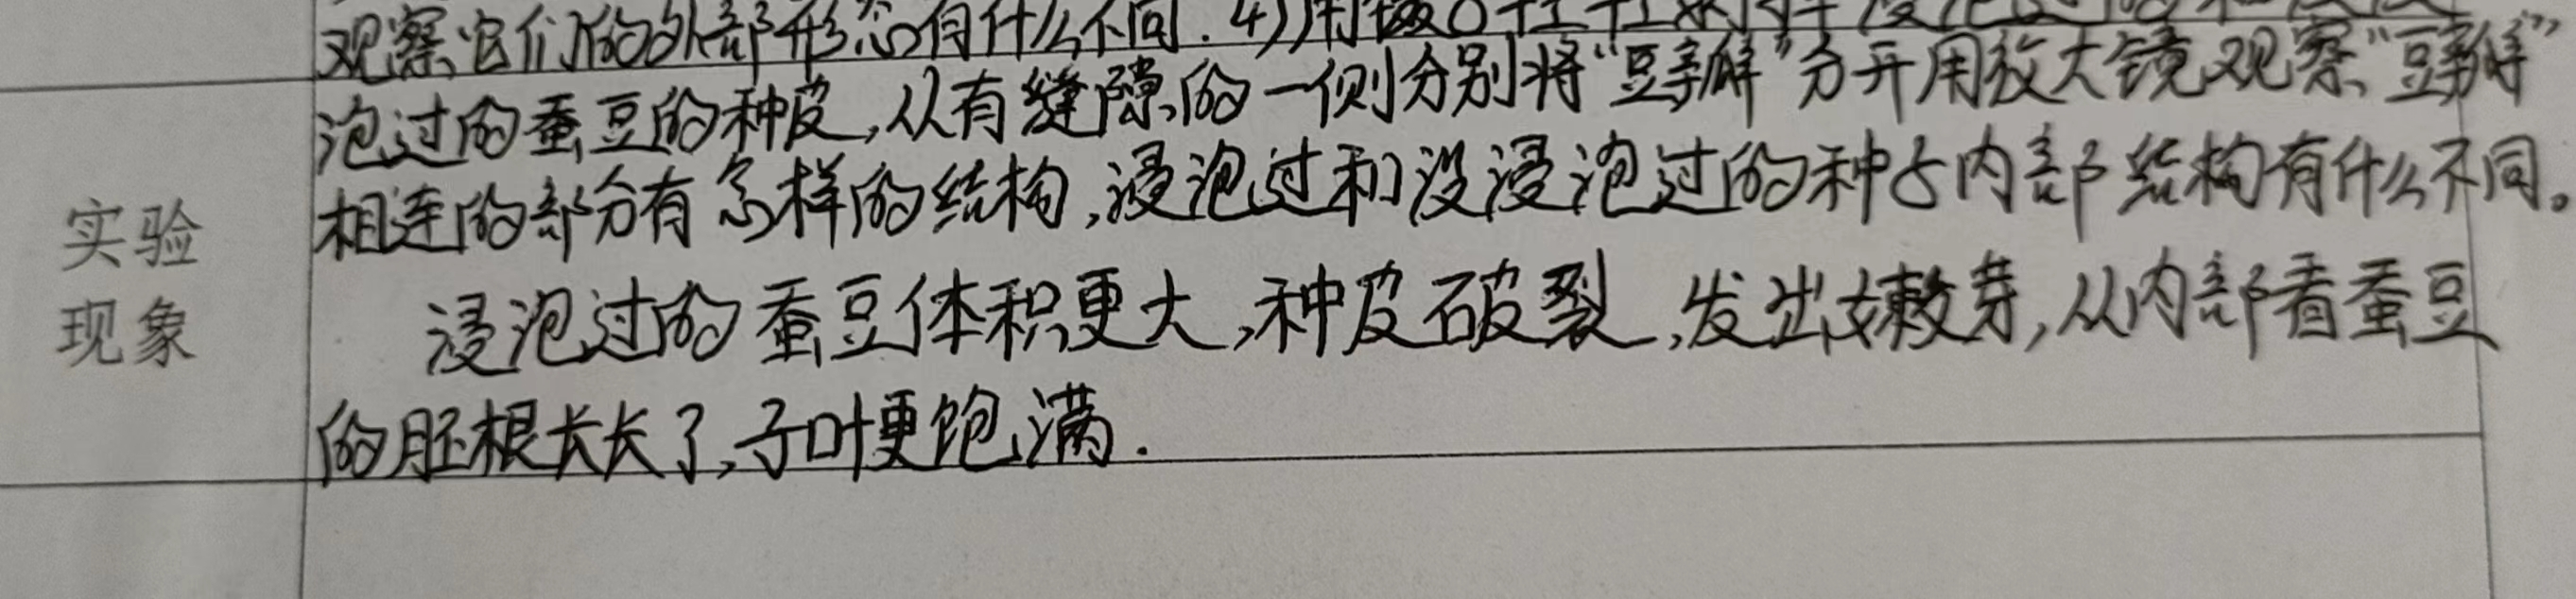 观察它们的外部形态有什么不同.4)用
泡过的蚕豆的种皮,从有缝隙的一侧分别将“豆瓣”分开用放大镜观察“豆瓣”
相连的部分有怎样的结构,浸泡过和没浸泡过的种子内部结构有什么不同。
实验
现象
浸泡过的蚕豆体积更大,种皮破裂,发出嫩芽,从内部看蚕豆
的胚根长长了,子叶更饱满.